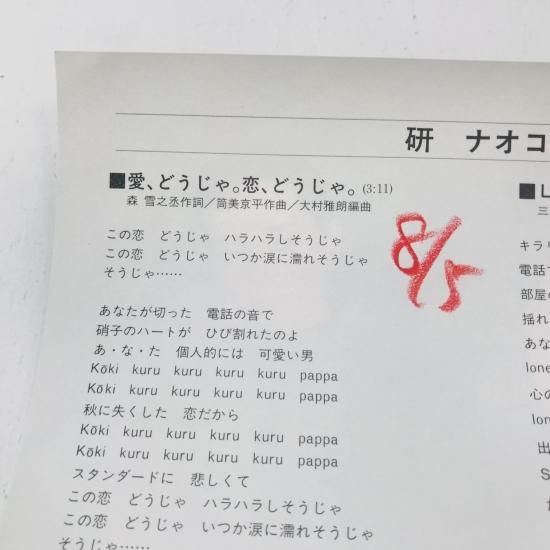 研 ナオコ
■愛、どうじゃ。恋、どうじゃ。(3:11)
森 雪之丞作詞／筒美京平作曲／大村雅朗編曲
8/5
この恋 どうじゃ ハラハラしそうじゃ
この恋 どうじゃ いつか涙に濡れそうじゃ
そうじゃ……
あなたが切った 電話の音で
硝子のハートが ひび割れたのよ
あ・な・た 個人的には 可愛い男
Kōki kuru kuru kuru kuru pappa
Kōki kuru kuru kuru kuru pappa
秋に失くした 恋だから
Kōki kuru kuru kuru kuru pappa
Kōki kuru kuru kuru kuru pappa
スタンダードに 悲しくて
この恋 どうじゃ ハラハラしそうじゃ
この恋 どうじゃ いつか涙に濡れそうじゃ
そうじゃ……
■L
三
キラリ
電話で
部屋の
揺れ
あな
lone
心の
lon
出
S